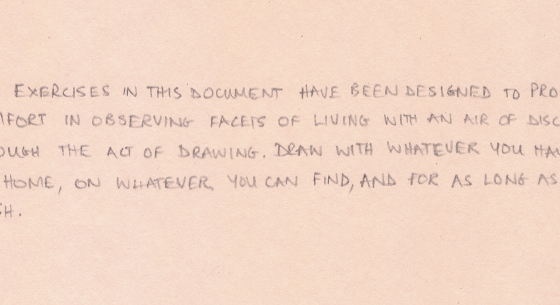 EXERCISES IN THIS DOCUMENT HAVE BEEN DESIGNED TO PRO
FORT IN OBSERVING FACETS OF LIVING WITH AN AIR OF DISC
OUGH THE ACT OF DRAWING. DRAW WITH WHATEVER YOU HAV
HOME, ON WHATEVER YOU CAN FIND, AND FOR AS LONG AS
SH.